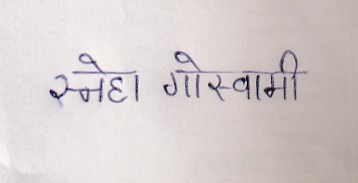 स्नेहा गोस्वामी